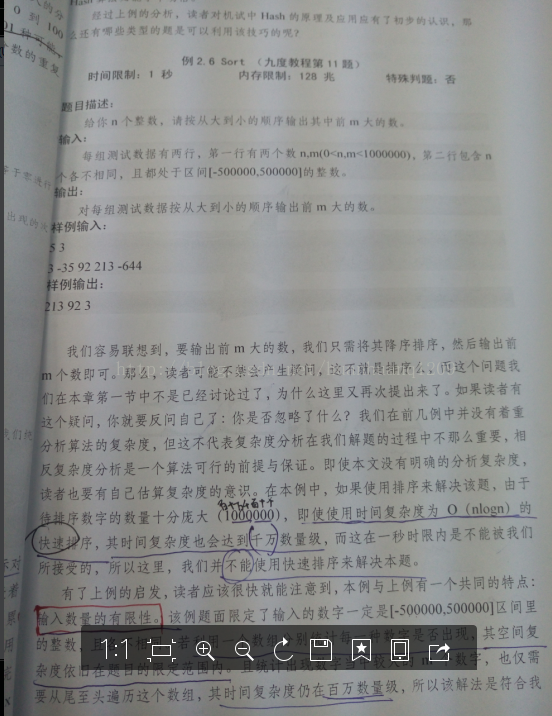 经过上例的分析，读者对机试中 Hash 的原理及应用应有了初步的认识，那
么还有哪些类型的题是可以利用该技巧的呢？
例 2.6 Sort （九度教程第 11 题）
时间限制：1 秒 内存限制：128 兆 特殊判题：否
题目描述：
给你 n 个整数，请按从大到小的顺序输出其中前 m 大的数。
输入：
每组测试数据有两行，第一行有两个数 n,m(0<n,m<1000000)，第二行包含 n
个各不相同，且都处于区间[-500000,500000]的整数。
输出：
对每组测试数据按从大到小的顺序输出前 m 大的数。
样例输入：
5 3
3 -35 92 213 -644
样例输出：
213 92 3
我们容易联想到，要输出前 m 大的数，我们只需将其降序排序，然后输出前
m 个数即可。那么，读者可能不禁会产生疑问，这不就是排序么，而这个问题我
们在本章第一节中不是已经讨论过了，为什么这里又再次提出来了。如果读者有
这个疑问，你就要反问自己了：你是否忽略了什么？我们在前几例中并没有着重
分析算法的复杂度，但这不代表复杂度分析在我们解题的过程中不那么重要，相
反复杂度分析是一个算法可行的前提与保证。即使本文没有明确的分析复杂度，
读者也要有自己估算复杂度的意识。在本例中，如果使用排序来解决该题，由于
待排序数字的数量十分庞大（1000000），即使使用时间复杂度为 O（nlogn）的
快速排序，其时间复杂度也会达到千万数量级，而这在一秒时限内是不能被我们
所接受的，所以这里，我们并不能使用快速排序来解决本题。
有了上例的启发，读者应该很快就能注意到，本例与上例有一个共同的特点：
输入数量的有限性。该例题面限定了输入的数字一定是[-500000,500000]区间里
的整数，且各不相同，若利用一个数组分别统计每一种数字是否出现，其空间复
1:1
杂度依旧在题目的限定范围内。且统计出现数字 m 数字，也仅需
要从尾至头遍历这个数组，其时间复杂度仍在百万数量级，所以该解法是符合我